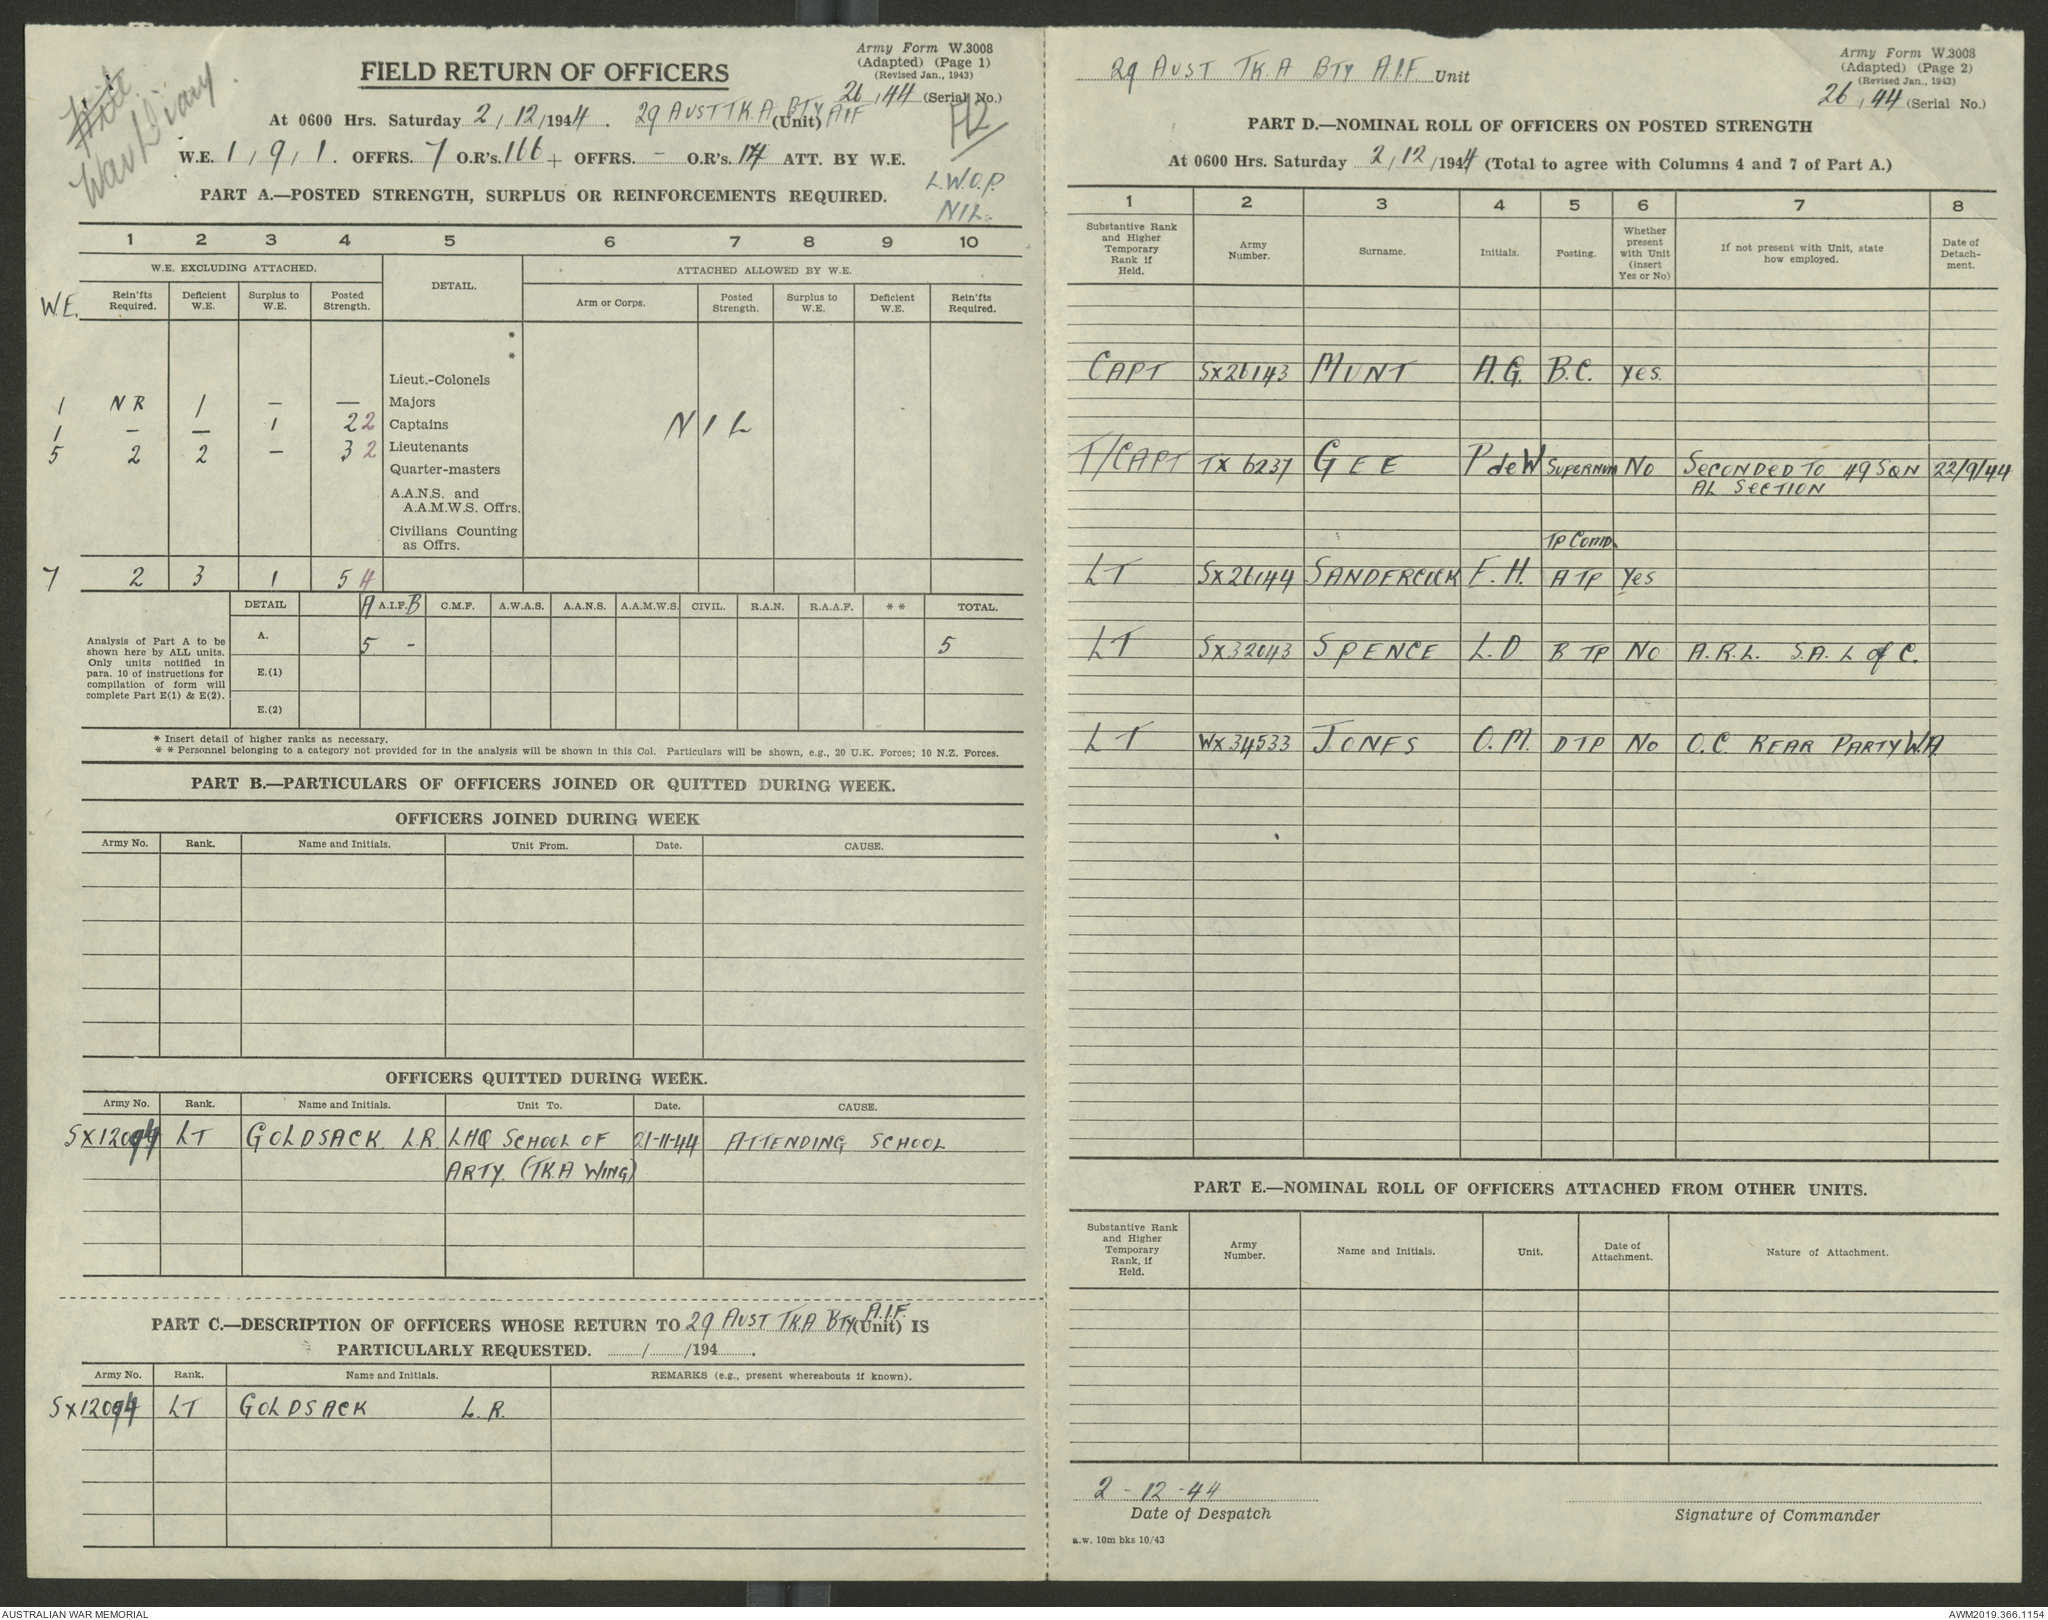 War Diary
Army Form W.3008
(Adapted) (Page 1)
(Revised Jan., 1943)
FIELD RETURN OF OFFICERS
26/44 (Serial No.)
At 0600 Hrs. Saturday 2/12/1944. 29 AUST TK.A BTY AIF (Unit)
W.E. 1, 9, 1. OFFRS. 7 O.R's. 166 + OFFRS. – O.R's. 14 ATT. BY W.E.
L.W.O.P.
NIL.
PART A.—POSTED STRENGTH, SURPLUS OR REINFORCEMENTS REQUIRED.
1 2 3 4 5 6 7 8 9 10
W.E. EXCLUDING ATTACHED. DETAIL. ATTACHED ALLOWED BY W.E.
W.E. Rein'fts Required. Deficient W.E. Surplus to W.E. Posted Strength. Arm or Corps. Posted Strength. Surplus to W.E. Deficient W.E. Rein'fts Required.
*
*
Lieut.-Colonels
1 NR 1 — — Majors
1 — — 1 2 2 Captains NIL
5 2 2 — 3 2 Lieutenants
Quarter-masters
A.A.N.S. and
A.A.M.W.S. Offrs.
Civilians Counting
as Offrs.
7 2 3 1 5 4
DETAIL A A.I.F. B C.M.F. A.W.A.S. A.A.N.S. A.A.M.W.S. CIVIL. R.A.N. R.A.A.F. * * TOTAL.
Analysis of Part A to be
shown here by ALL units.
Only units notified in
para. 10 of instructions for
compilation of form will
complete Part E(1) & E(2).
A. 5 - 5
E.(1)
E.(2)
* Insert detail of higher ranks as necessary.
* * Personnel belonging to a category not provided for in the analysis will be shown in this Col. Particulars will be shown, e.g., 20 U.K. Forces; 10 N.Z. Forces.
PART B.—PARTICULARS OF OFFICERS JOINED OR QUITTED DURING WEEK.
OFFICERS JOINED DURING WEEK
Army No. Rank. Name and Initials. Unit From. Date. CAUSE.
OFFICERS QUITTED DURING WEEK.
Army No. Rank. Name and Initials. Unit To. Date. CAUSE.
SX12094 LT GOLDSACK L.R. LHQ SCHOOL OF 21-11-44 ATTENDING SCHOOL
ARTY. (TK.A WING)
PART C.—DESCRIPTION OF OFFICERS WHOSE RETURN TO 29 AUST TK.A BTY A.I.F. (Unit) IS
PARTICULARLY REQUESTED. / /194 .
Army No. Rank. Name and Initials. REMARKS (e.g., present whereabouts if known).
SX12094 LT GOLDSACK L.R.
29 AUST TK.A BTY A.I.F. Unit
Army Form W.3008
(Adapted) (Page 2)
(Revised Jan., 1943)
26/44 (Serial No.)
PART D.—NOMINAL ROLL OF OFFICERS ON POSTED STRENGTH
At 0600 Hrs. Saturday 2/12/1944 (Total to agree with Columns 4 and 7 of Part A.)
1 2 3 4 5 6 7 8
Substantive Rank and Higher Temporary Rank if Held. Army Number. Surname. Initials. Posting. Whether present with Unit (insert Yes or No) If not present with Unit, state how employed. Date of Detach-ment.
CAPT SX26143 MUNT A.G. B.C. Yes.
T/CAPT TX 6237 GEE P deW SUPERNUM NO SECONDED TO 49 SQN 22/9/44
AL SECTION
TP COMD.
LT SX26144 SANDERCOCK E.H. A TP Yes
LT SX32043 SPENCE L.D B TP NO A.R.L. S.A. L of C.
LT WX34533 JONES O.M. D TP NO O.C. REAR PARTY W.A.
PART E.—NOMINAL ROLL OF OFFICERS ATTACHED FROM OTHER UNITS.
Substantive Rank and Higher Temporary Rank, if Held. Army Number. Name and Initials. Unit. Date of Attachment. Nature of Attachment.
2-12-44
Date of Despatch
Signature of Commander
a.w. 10m bks 10/43
AUSTRALIAN WAR MEMORIAL
AWM2019.366.1154